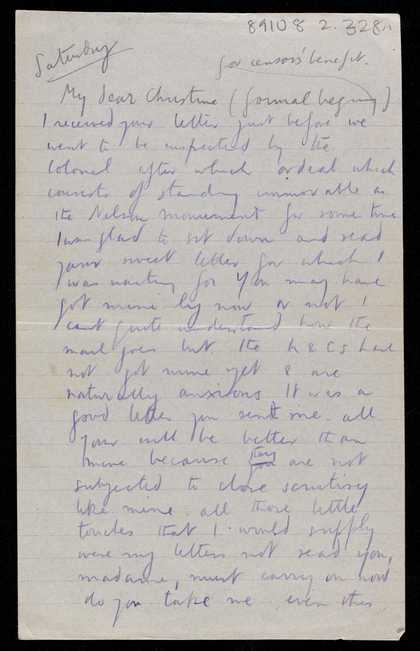 89108 2.328
Saturday
for censors' benefit.
My dear Christine (formal begining)
I received your letter just before we
went to be inspected by the
Colonel after which ordeal which
consists of standing immovable as
the Nelson monument for some time
I was glad to sit down and read
your sweet letter for which I
was waiting for You may have
got mine by now or not I
can't quite understand how the
mail goes but the have
not got mine yet & are
naturally anxious It was a
good letter you sent me. all
your will be better than
mine because they are not
subjected to close scrutiny
like mine. all those little
touches that I would supply
were my letters not read you,
madame, must carry on now
do you take me even this